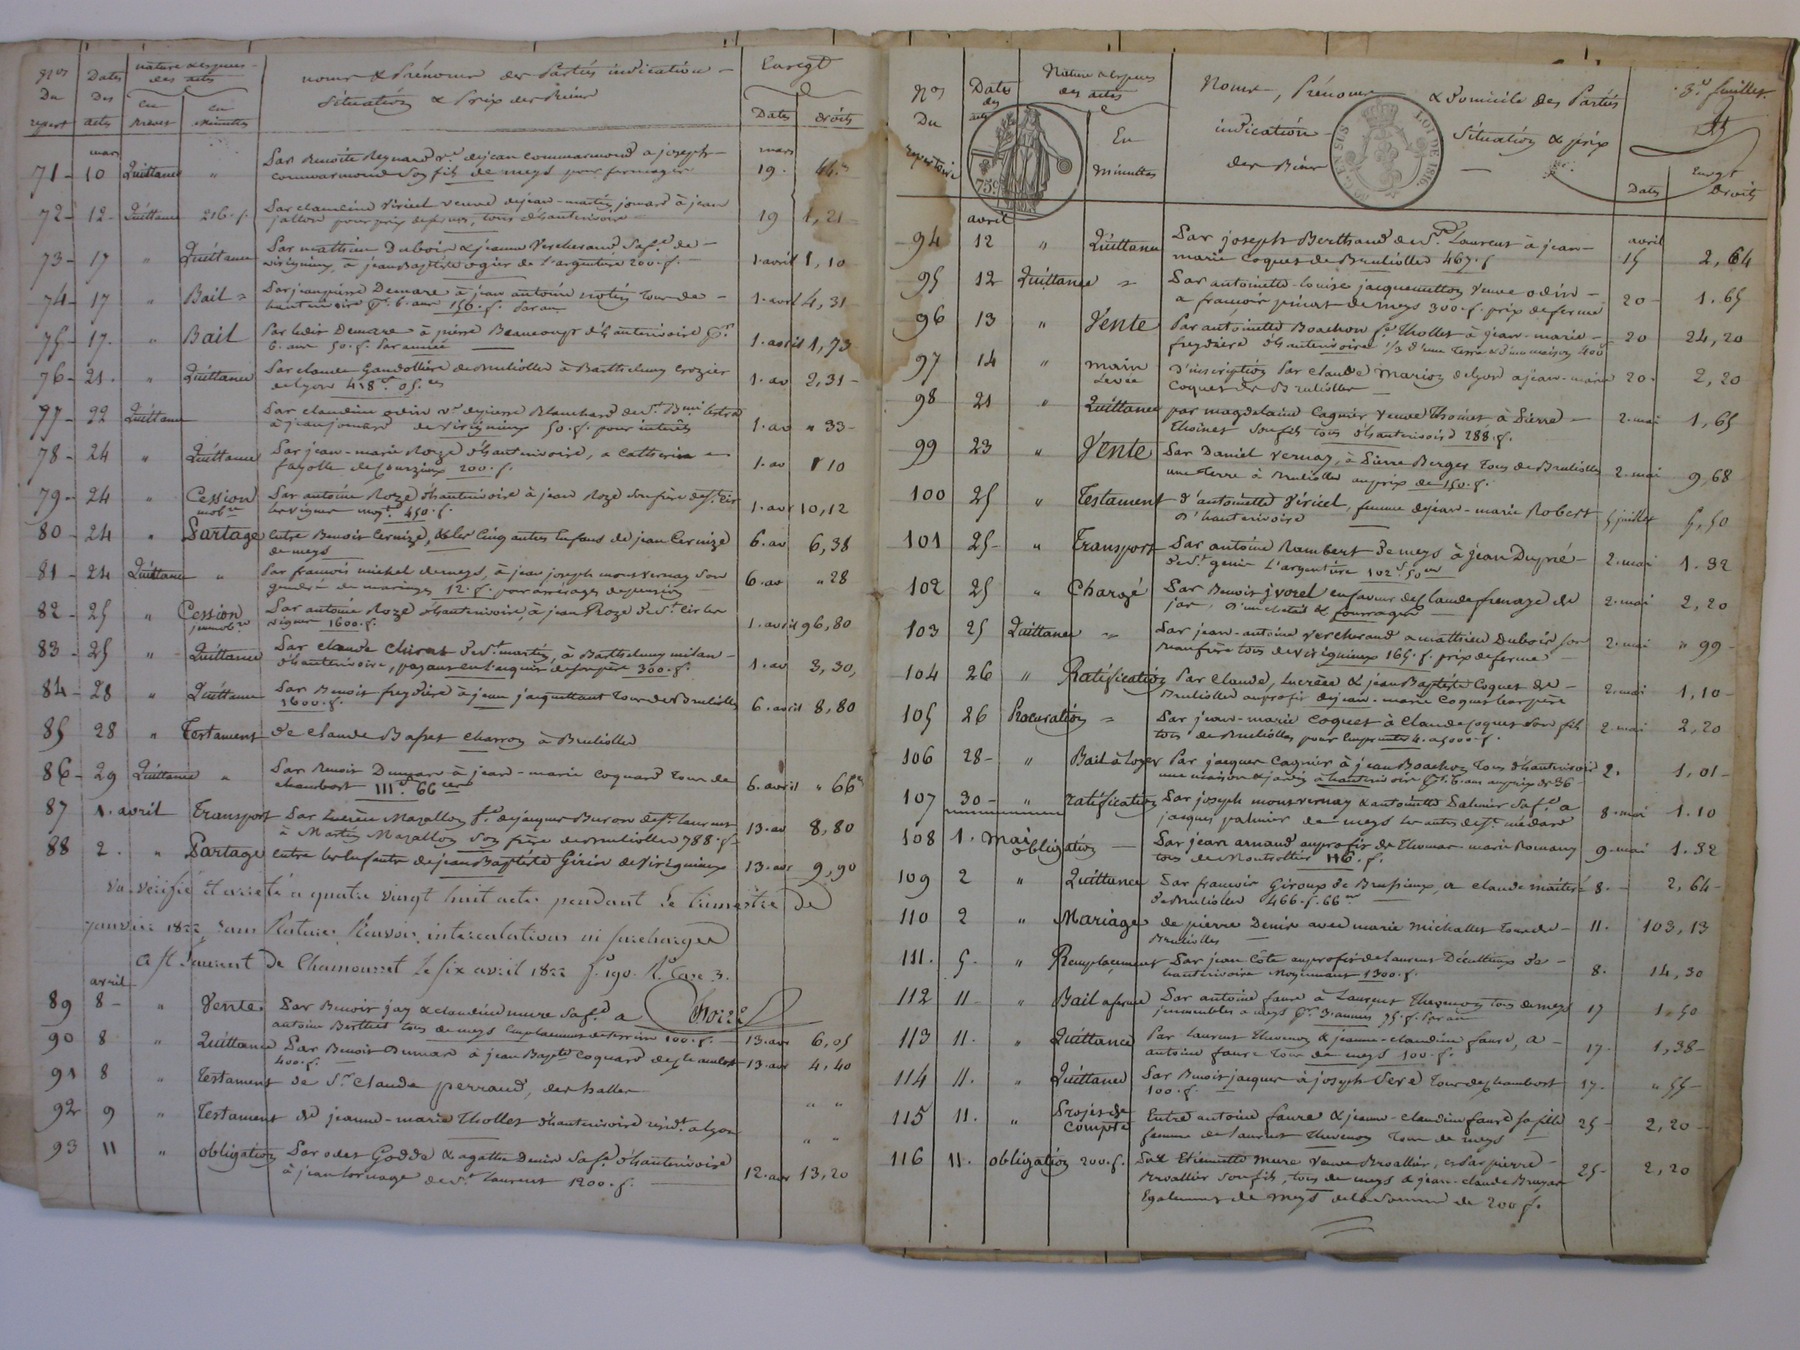 Nos Dates nature & espèces noms & Prénoms des Parties indication Enregt
Du Des des actes Situation & Prix des Biens
repert actes en Brevet en Minutes Dates droits
mars mars
71 10 Quittance " Par Benoite Reynard ve dejean commarmond a joseph 19
commarmond son fils de meys pour fermages
72 12 Quittance 216.f. Par claudine Viricel veuve dejean-martin jomard à jean 19 1,21
jallon pour prix deferme, tous d'hauterivoire
73 17 " Quittance Par mathieu Dubois & jeanne Vercherand safe de 1.avril 1,10
virigneux, à jeanBaptiste ogier de l'argentière 200.f.
74 17 " Bail Par jeanpierre Demare à jean antoine notin Tous de 1.avril 4,31
hauterivoire pr. 6. ans 156.f. Par an
75 17 " Bail Par ledit Demare à pierre Beaucoup d'hauterivoire pr 1.avril 1,73
6. ans 50.f. Par année
76 21 " Quittance Par claude Gandollière deBrullioles à Barthelemy crozier 1.av 2,31
de lyon 418f. 05.es
77 22 Quittance Par claudine odin ve depierre Blanchard de St Bmi lestra 1.av " 33
à jean jomard de virigneux 50.f. pour intérêts
78 24 " Quittance Par jean-marie Roze d'hauterivoire, a catherine 1.av 1 10
fayolle de Courzieu 200.f.
79 24 " Cession Par antoine Roze d'hauterivoire à jean Roze son frère de St Cir 1.avr 10,12
mobre les vignes moyt 450.f.
80 24 " Partage entre Benoit Cernize, & les Cinq autres enfans de jean Cernize 6.av 6,38
de meys
81 24 Quittance " Par francois michel demeys, à jean joseph montvernay son 6.av " 28
gendre de maringes 12.f. pour arrérages depension
82 25 " Cession Par antoine Roze d'hauterivoire, à jean Roze de St cir les 1.avril 96,80
immobre vignes 1600.f.
83 25 " Quittance Par claude Chirat de St martin, à Barthelemy milan 1.av 3,30
d'hauterivoire, payant en l'acquit de son père 300.f.
84 28 " Quittance Par Benoit freydière à jean jacquettant Tous de Brullioles 6.avril 8,80
1600.f.
85 28 " Testament de claude Basset charron à Brullioles
86 29 Quittance " Par Benoit Dumare à jean-marie coquard Tous de 6.avril " 66
chambost 111f. 66 ces
87 1.avril Transport Par Lucrèce Mazallon fe. dejacques Buron de St laurent 13.av 8,80
à Martin Mazallon son frère de Brullioles 788.f.
88 2. " Partage entre les enfants de jeanBaptiste Girin de Virigneux 13.avr 9,90
vu vérifié et arrêté a quatre vingt huit actes pendant le trimestre de
janvier 1822, sans Rature, Renvois, intercalations ni surcharges
a St Laurent de Chamousset le six avril 1822 f. 190. Ro Case 3.
avril
89 8 " Vente Par Benoit jay & claudine mure safe a
antoine Berthet tous de meys emplacement de terrein 100.f. 13.avr 6,05
90 8 " Quittance Par Benoit Dumar à jean Bapte coquard de chambost 13.avr 4,40
400.f.
91 8 " Testament de Sr claude perraud, des halles " "
92 9 " Testament de jeanne-marie Thollet d'hauterivoire résidt a lyon " "
93 11 " obligation Par odet Godde & agathe Denis safe d'hauterivoire 12.avr 13,20
à jean lornage de St laurent 1200.f.
3e feuillet
Nos Dates Nature & espèces Noms, Prénoms & domicile des Parties
Du des des actes indication Situation & prix
repertoire actes En Minuttes des Biens Enregt
Dates Droits
75c
LOI DE 1816
avril avril
94 12 " Quittance Par joseph Berthaud de St Laurent à jean 15 2,64
marie Coquet de Brullioles 467.f
95 12 Quittance " Par antoinette-louise jacquemetton veuve odin 20 1.65
a francois pinat de meys 300.f. prix de ferme
96 13 " Vente Par antoinette Boachon fe Thollet à jean-marie 20 24,20
freydière d'hauterivoire 1/3 d'une Terre & d'une maison 400f
97 14 " main D'inscription Par claude Marion delyon a jean-marie 20 2,20
Levée Coquet de Brullioles
98 21 " Quittance par magdelaine Cagnier veuve Thoinet à Pierre 2.mai 1,65
Thoinet son fils tous d'hauterivoire 288.f.
99 23 " Vente Par Daniel Vernay, à Pierre Berger Tous de Brullioles 2.mai 9,68
une terre à Brullioles au prix de 150.f.
100 25 " Testament d'antoinette Viricel, femme dejean-marie Robert 5 juillet 5,50
d'hauterivoire
101 25 " Transport Par antoine Rambert de meys à jean Dupré 2.mai 1.32
de St genis L'argentière 102f. 50 ces
102 25 " Chargé Par Benoit jvorel en faveur de Claude frenaze de 2.mai 2,20
jar, d'un cheval & fourrages
103 25 Quittance " Par jean-antoine vercherand a mathieu Dubois son 2.mai " 99
beaufrère tous de virigneux 165.f. prix de ferme
104 26 " Ratification Par Claude, Lucrèce & jean Baptiste Coquet de 2.mai 1,10
Brullioles au profit dejean-marie Coquet leur père
105 26 Procuration " Par jean-marie Coquet à Claude Coquet son fils 2 mai 2,20
tous de Brullioles pour Emprunter 4. a 5000.f.
106 28 " Bail à loyer Par jacques Cagnier à jean Boachon tous d'hauterivoire 2. 1,01
une maison & jardin à hauterivoire pr. 6. ans au prix de 36
107 30 " ratification Par joseph montvernay & antoinette Palmier safe a 8.mai 1.10
jacques palmier de meys les autres de St médard
108 1. Mai obligation Par jean arnaud au profit de Thomas marie Romany 9.mai 1.32
tous de Montrottier 116.f.
109 2 " Quittance Par francois Giroux de Brussieux, a claude maître 8. 2,64
de Brullioles 466.f. 66 es
110 2 " Mariage de pierre Denis avec marie Michallet tous de 11. 103,13
Brullioles
111. 5. " Remplaçement Par jean Côte au profit de Laurent Décultieux de 8. 14,30
hauterivoire Moyennant 1300.f.
112 11 " Bail a ferme Par antoine faure à Laurent Thevenon tous de meys 17 1,50
jmmeubles a meys pr. 3 années 75.f. Par an
113 11. " Quittance Par Laurent Thevenon & jeanne-claudine faure, a 17. 1,38
antoine faure Tous de meys 100.f.
114 11. " Quittance Par Benoit jacques à joseph Seve Tous de chambost 17. " 55
100.f.
115 11. " Projet de Entre antoine faure & jeanne-claudine faure sa fille 25 2,20
Compte femme de Laurent Thevenon Tous de meys
116 11. obligation 200.f. Par Etiennette Mure veuve Brvallier, & Par pierre 25 2,20
Brvallier son fils, tous de meys à jean-claude Bruyas
Egalement de meys de la somme de 200f.